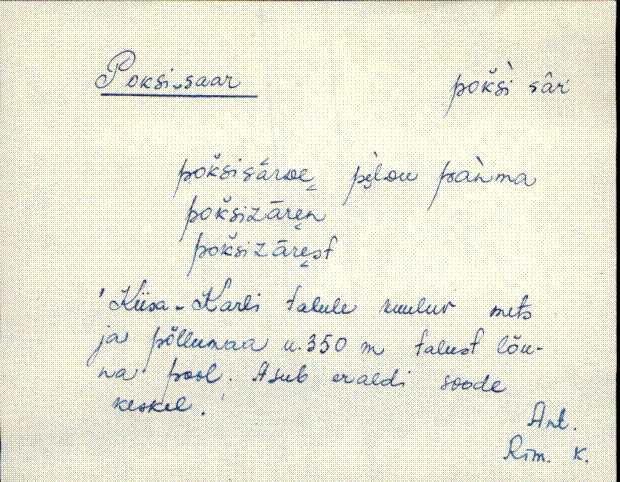 Poksi-saar pok̆sì sâr
pok̆sisārwe̮ pe̮lou panma
pok̆sizāre̮n
pok̆sizāre̮st
'Kiisa-Karli talule kuuluv mets
ja põllumaa u. 350 m talust lõu-
na pool. Asub eraldi soode
keskel.'
Ant.
Rim. K.